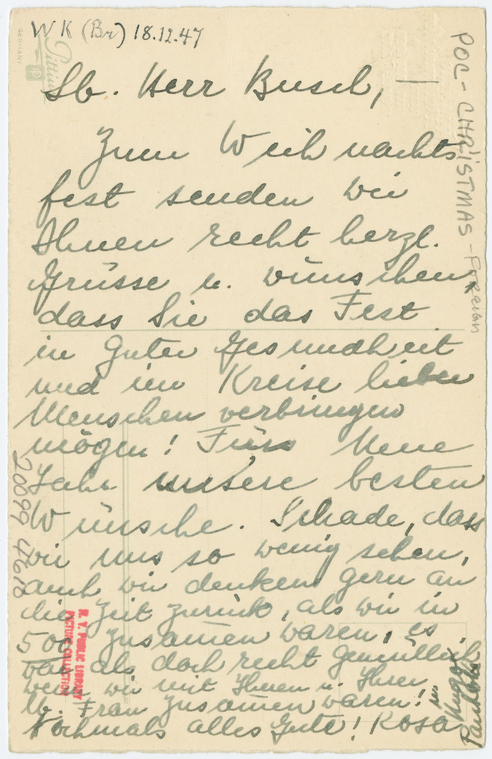 WK (Br) 18.12.47
Lb. Herr Busch, —
Zum Weihnachts
fest senden wir
Ihnen recht herzl.
Grüsse u. wünschen
dass Sie das Fest
in guter Gesundheit
und im Kreise lieber
Menschen verbringen
mögen! Fürs Neue
Jahr unsere besten
Wünsche. Schade, dass
wir uns so wenig sehen,
auch wir denken gern an
die Zeit zurück, als wir in
500 zusamen waren, es
war als doch recht gemütlich
wenn wir mit Ihnen u. Ihrer
lb. Frau zusamen waren!
Nochmals alles Gute! Rosa
u. Hugo
POC-CHRISTMAS-FOREIGN
N. Y. PUBLIC LIBRARY
PICTURE COLLECTION
GERMANY